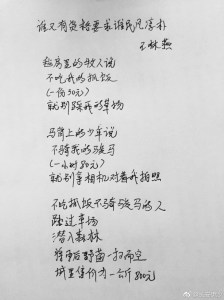 谁又有资格要求谁民风淳朴
王林燕
毡房里的牧人说
不吃我的抓饭
(一份30元)
就别踩我的草场
马背上的少年说
不骑我的骏马
(一小时80元)
就别拿相机对着我拍照
不吃抓饭不骑骏马的人
路过草场
潜入森林
将雨后野菌一扫而空
城里售价为一斤800元